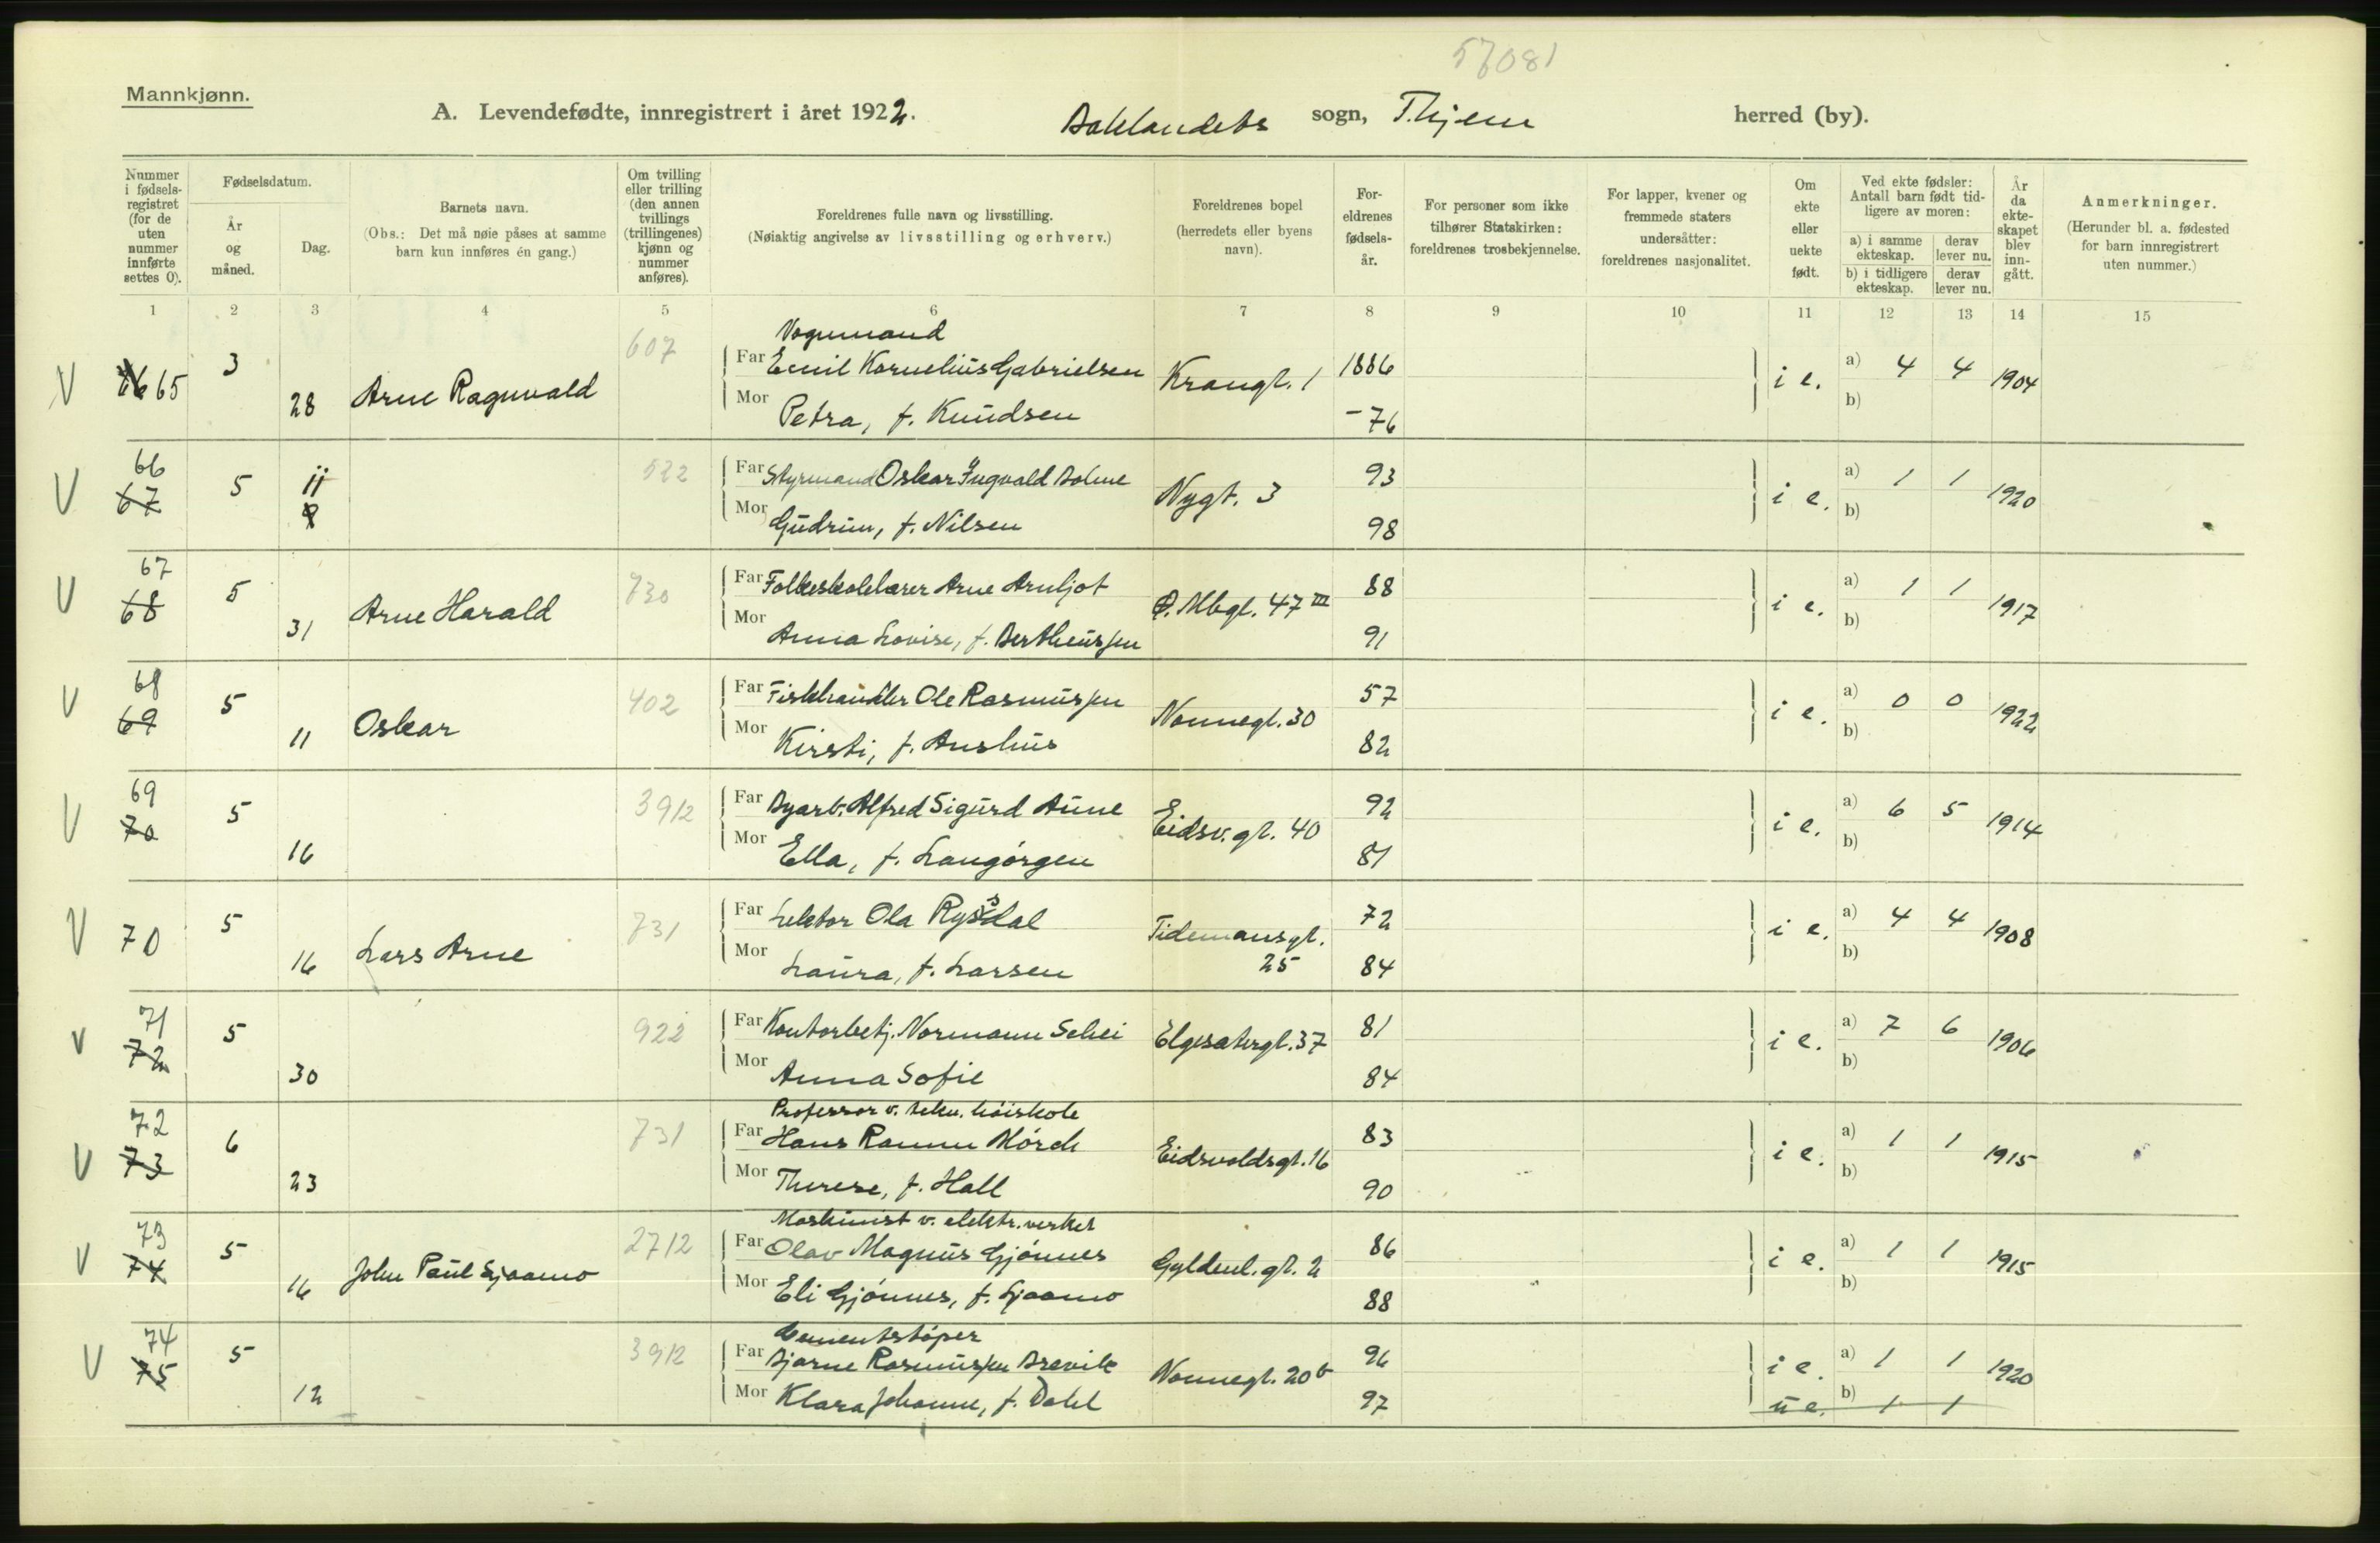 57081
Mannkjønn.
A. Levendefødte, innregistrert i året 1922. Baklandets sogn, T.hjem herred (by).
Nummer i fødsels-registret (for de uten nummer innførte settes 0).
Fødselsdatum.
År og måned.
Dag.
Barnets navn.
(Obs.: Det må nøie påses at samme barn kun innføres én gang.)
Om tvilling eller trilling (den annen tvillings (trillingenes) kjønn og nummer anføres).
Foreldrenes fulle navn og livsstilling.
(Nøiaktig angivelse av livsstilling og erhverv.)
Foreldrenes bopel (herredets eller byens navn).
For-eldrenes fødsels-år.
For personer som ikke tilhører Statskirken: foreldrenes trosbekjennelse.
For lapper, kvener og fremmede staters undersåtter: foreldrenes nasjonalitet.
Om ekte eller uekte født.
Ved ekte fødsler: Antall barn født tid-ligere av moren:
a) i samme ekteskap. derav lever nu.
b) i tidligere ekteskap. derav lever nu.
År da ekte-skapet blev inn-gått.
Anmerkninger.
(Herunder bl. a. fødested for barn innregistrert uten nummer.)
1 2 3 4 5 6 7 8 9 10 11 12 13 14 15
V 65 3 28 Arne Ragnvald 607
Vognmand
Far Emil Kornelius Gabrielsen Krangt. 1 1886 i e. a) 4 4 1904
Mor Petra, f. Knudsen -76 b)
V 66 67 5 11 522
Far Styrmand Oskar Ingvald Holme Nygt. 3 93 i e. a) 1 1 1920
Mor Gudrun, f. Nilsen 98 b)
V 67 68 5 31 Arne Harald 730
Far Folkeskolelærer Arne Arnljot Ø. Mbgt. 47 III 88 i e. a) 1 1 1917
Mor Anna Lovise, f. Bertheussen 91 b)
V 68 69 5 11 Oskar 402
Far Fiskhandler Ole Rasmussen Nonnegt. 30 57 i e. a) 0 0 1922
Mor Kirsti, f. Aushus 82 b)
V 69 70 5 16 3912
Far Byarb. Alfred Sigurd Aune Eidsv. gt. 40 92 i e. a) 6 5 1914
Mor Ella, f. Langørgen 81 b)
V 70 5 16 Lars Arne 731
Far Lektor Ola Rysdal Tidemansgt. 25 72 i e. a) 4 4 1908
Mor Laura, f. Larsen 84 b)
V 71 72 5 30 922
Far Kontorbetj. Normann Schei Elgesætergt. 37 81 i e. a) 7 6 1906
Mor Anna Sofie 84 b)
V 72 73 6 23 731
Professor v. tekn. høiskole
Far Hans Ramm Mørch Eidsvoldsgt. 16 83 i e. a) 1 1 1915
Mor Therese, f. Hall 90 b)
V 73 74 5 16 John Paul Gjaamo 2712
Maskinist v. elektr. verket
Far Olav Magnus Gjønnes Gyldenl. gt. 2 86 i e. a) 1 1 1915
Mor Eli Gjønnes, f. Gjaamo 88 b)
V 74 75 5 12 3912
Cementstøper
Far Bjarne Rasmussen Brevik Nonnegt. 20 b 96 i e. a) 1 1 1920
Mor Klara Johanne, f. Dahl 97 u e. b) 1 1